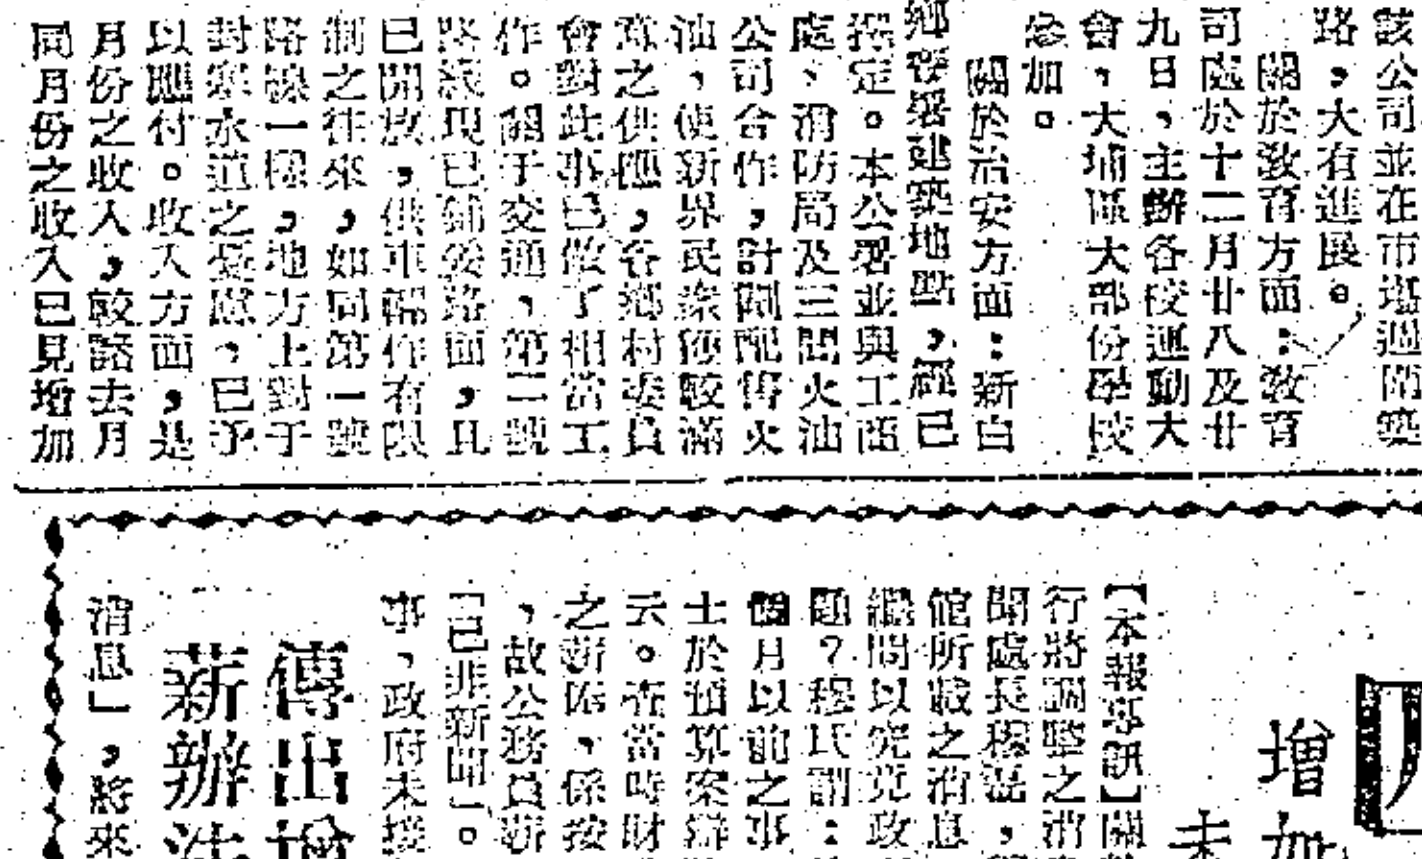 該公司並在市場週圍築
路，大有進展。
關於教育方面：教育
司處於十二月廿八及廿
九日，主辦各校運動大
會，大埔區大部份學校
參加。
關於治安方面：新白
鄉警署建築地點，經已
擇定。本公署並與工商
處、消防局及三間火油
公司合作，計劃配售火
油，使新界民衆獲較滿
意之供應，各鄉村委員
會對此事已做了相當工
作。關于交通，第二號
路線現已鋪後路面，且
已開放，供車輛作有限
制之往來，如同第一號
路線一樣，地方上對于
封塞水道之憂慮，已予
以應付。收入方面，是
月份之收入，較諸去月
同月份之收入已見增加
增加
未
【本報專訊】關
行將調整之消
聞處長穆
館所載之消息
繼問以究竟政
題？穆氏謂：
個月以前之事
士於預算案辯
云。查當時財
之薪俸，係按
，故公務員薪
「已非新聞」。
事，政府未接
傳出增
薪辦法
消息」，將來